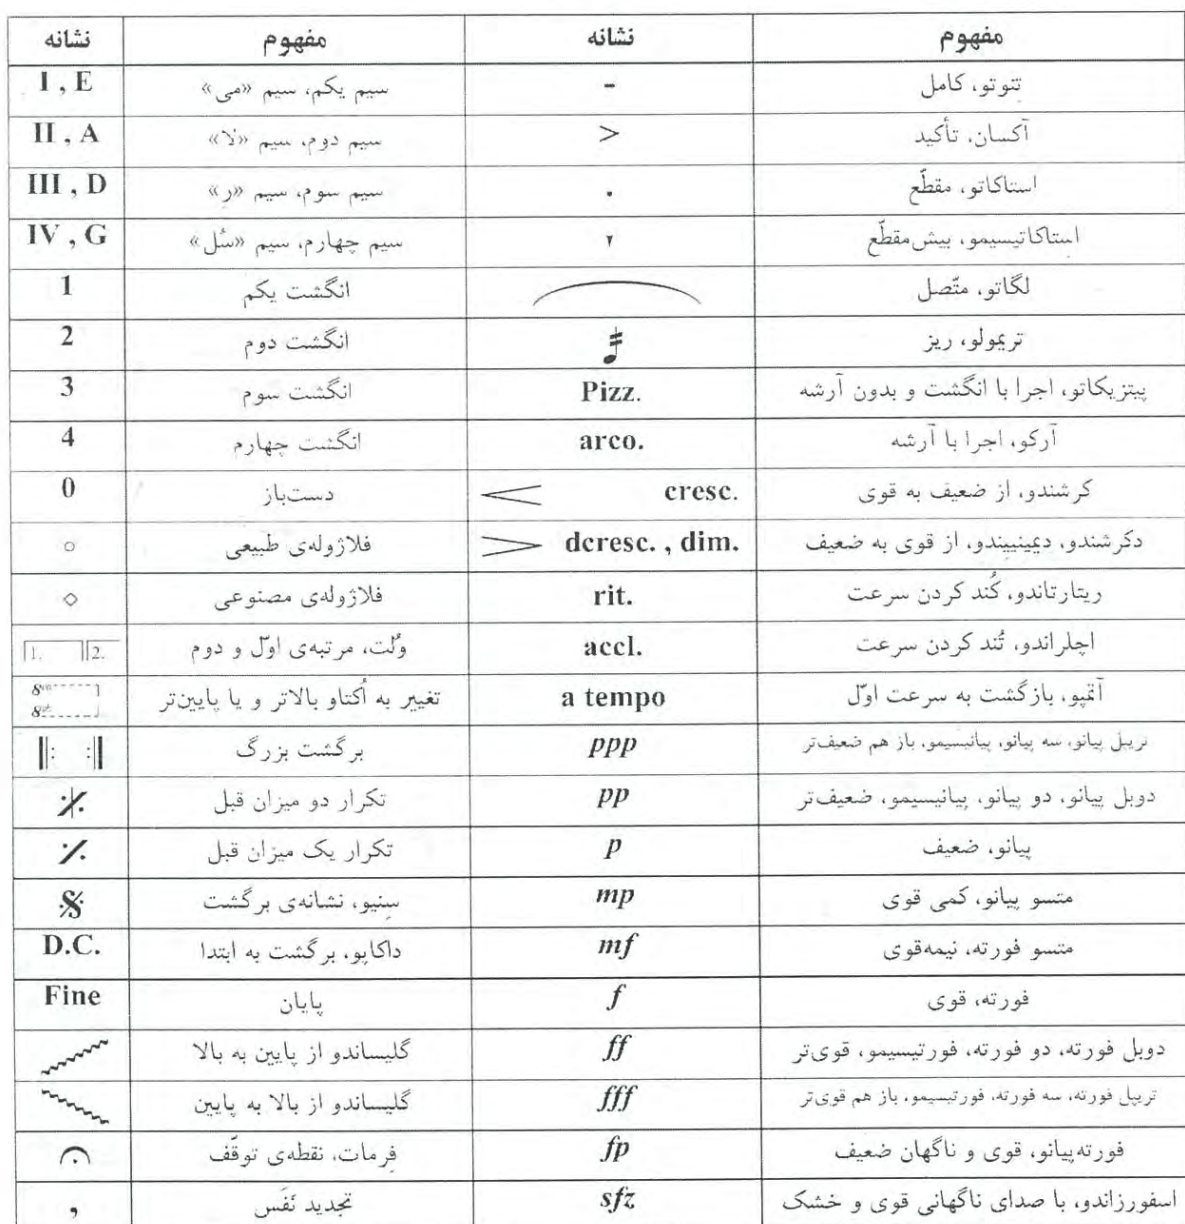 نشانه | مفهوم | نشانه | مفهوم
I , E | سیم یکم، سیم «می» | - | تِنوتو، کامل
II , A | سیم دوم، سیم «لا» | > | آکسان، تأکید
III , D | سیم سوم، سیم «رِ» | . | استاکاتو، مقطّع
IV , G | سیم چهارم، سیم «سُل» | استاکاتیسیمو، بیش‌مقطّع
1 | انگشت یکم | لگاتو، متّصل
2 | انگشت دوم | تریمولو، ریز
3 | انگشت سوم | Pizz. | پیتزیکاتو، اجرا با انگشت و بدون آرشه
4 | انگشت چهارم | arco. | آرکو، اجرا با آرشه
0 | دست‌باز | cresc. | کرشندو، از ضعیف به قوی
○ | فلاژوله‌ی طبیعی | dcresc. , dim. | دکرشندو، دیمینییندو، از قوی به ضعیف
◇ | فلاژوله‌ی مصنوعی | rit. | ریتارتاندو، کُند کردن سرعت
1. 2. | وُلت، مرتبه‌ی اوّل و دوم | accl. | اچلراندو، تُند کردن سرعت
تغییر به اُکتاو بالاتر و یا پایین‌تر | a tempo | آتمپو، بازگشت به سرعت اوّل
برگشت بزرگ | ppp | تریبل پیانو، سه پیانو، پیانیسیمو، باز هم ضعیف‌تر
تکرار دو میزان قبل | pp | دوبل پیانو، دو پیانو، پیانیسیمو، ضعیف‌تر
تکرار یک میزان قبل | p | پیانو، ضعیف
سِنیو، نشانه‌ی برگشت | mp | متسو پیانو، کمی قوی
D.C. | داکاپو، برگشت به ابتدا | mf | متسو فورته، نیمه‌قوی
Fine | پایان | f | فورته، قوی
گلیساندو از پایین به بالا | ff | دوبل فورته، دو فورته، فورتیسیمو، قوی‌تر
گلیساندو از بالا به پایین | fff | تریپل فورته، سه فورته، فورتیسیمو، باز هم قوی‌تر
فِرمات، نقطه‌ی توقّف | fp | فورته‌پیانو، قوی و ناگهان ضعیف
, | تجدید نَفَس | sfz | اسفورزاندو، با صدای ناگهانی قوی و خشک